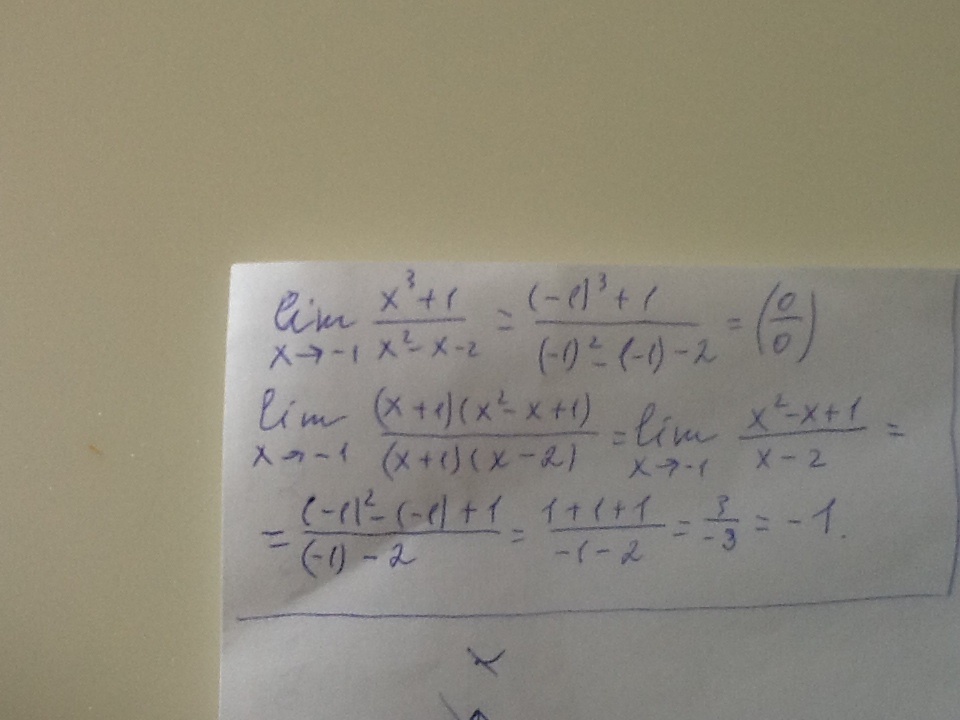 lim x→-1 (x³+1)/(x²-x-2) = ((-1)³+1)/((-1)²-(-1)-2) = (0/0)
lim x→-1 ((x+1)(x²-x+1))/((x+1)(x-2)) = lim x→-1 (x²-x+1)/(x-2) =
= ((-1)²-(-1)+1)/((-1)-2) = (1+1+1)/(-1-2) = 3/-3 = -1.
x